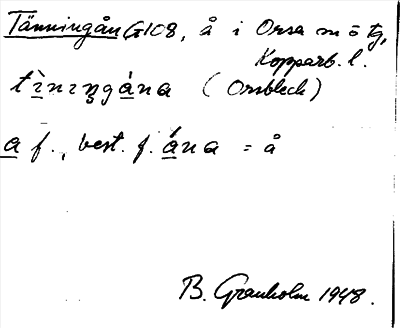 Tänningån G108, å i Orsa m ö tg,
Kopparb. l.
tìnıŋgána (Orsbleck)
a f., best. f. ána = å
B. Granholm 1948.